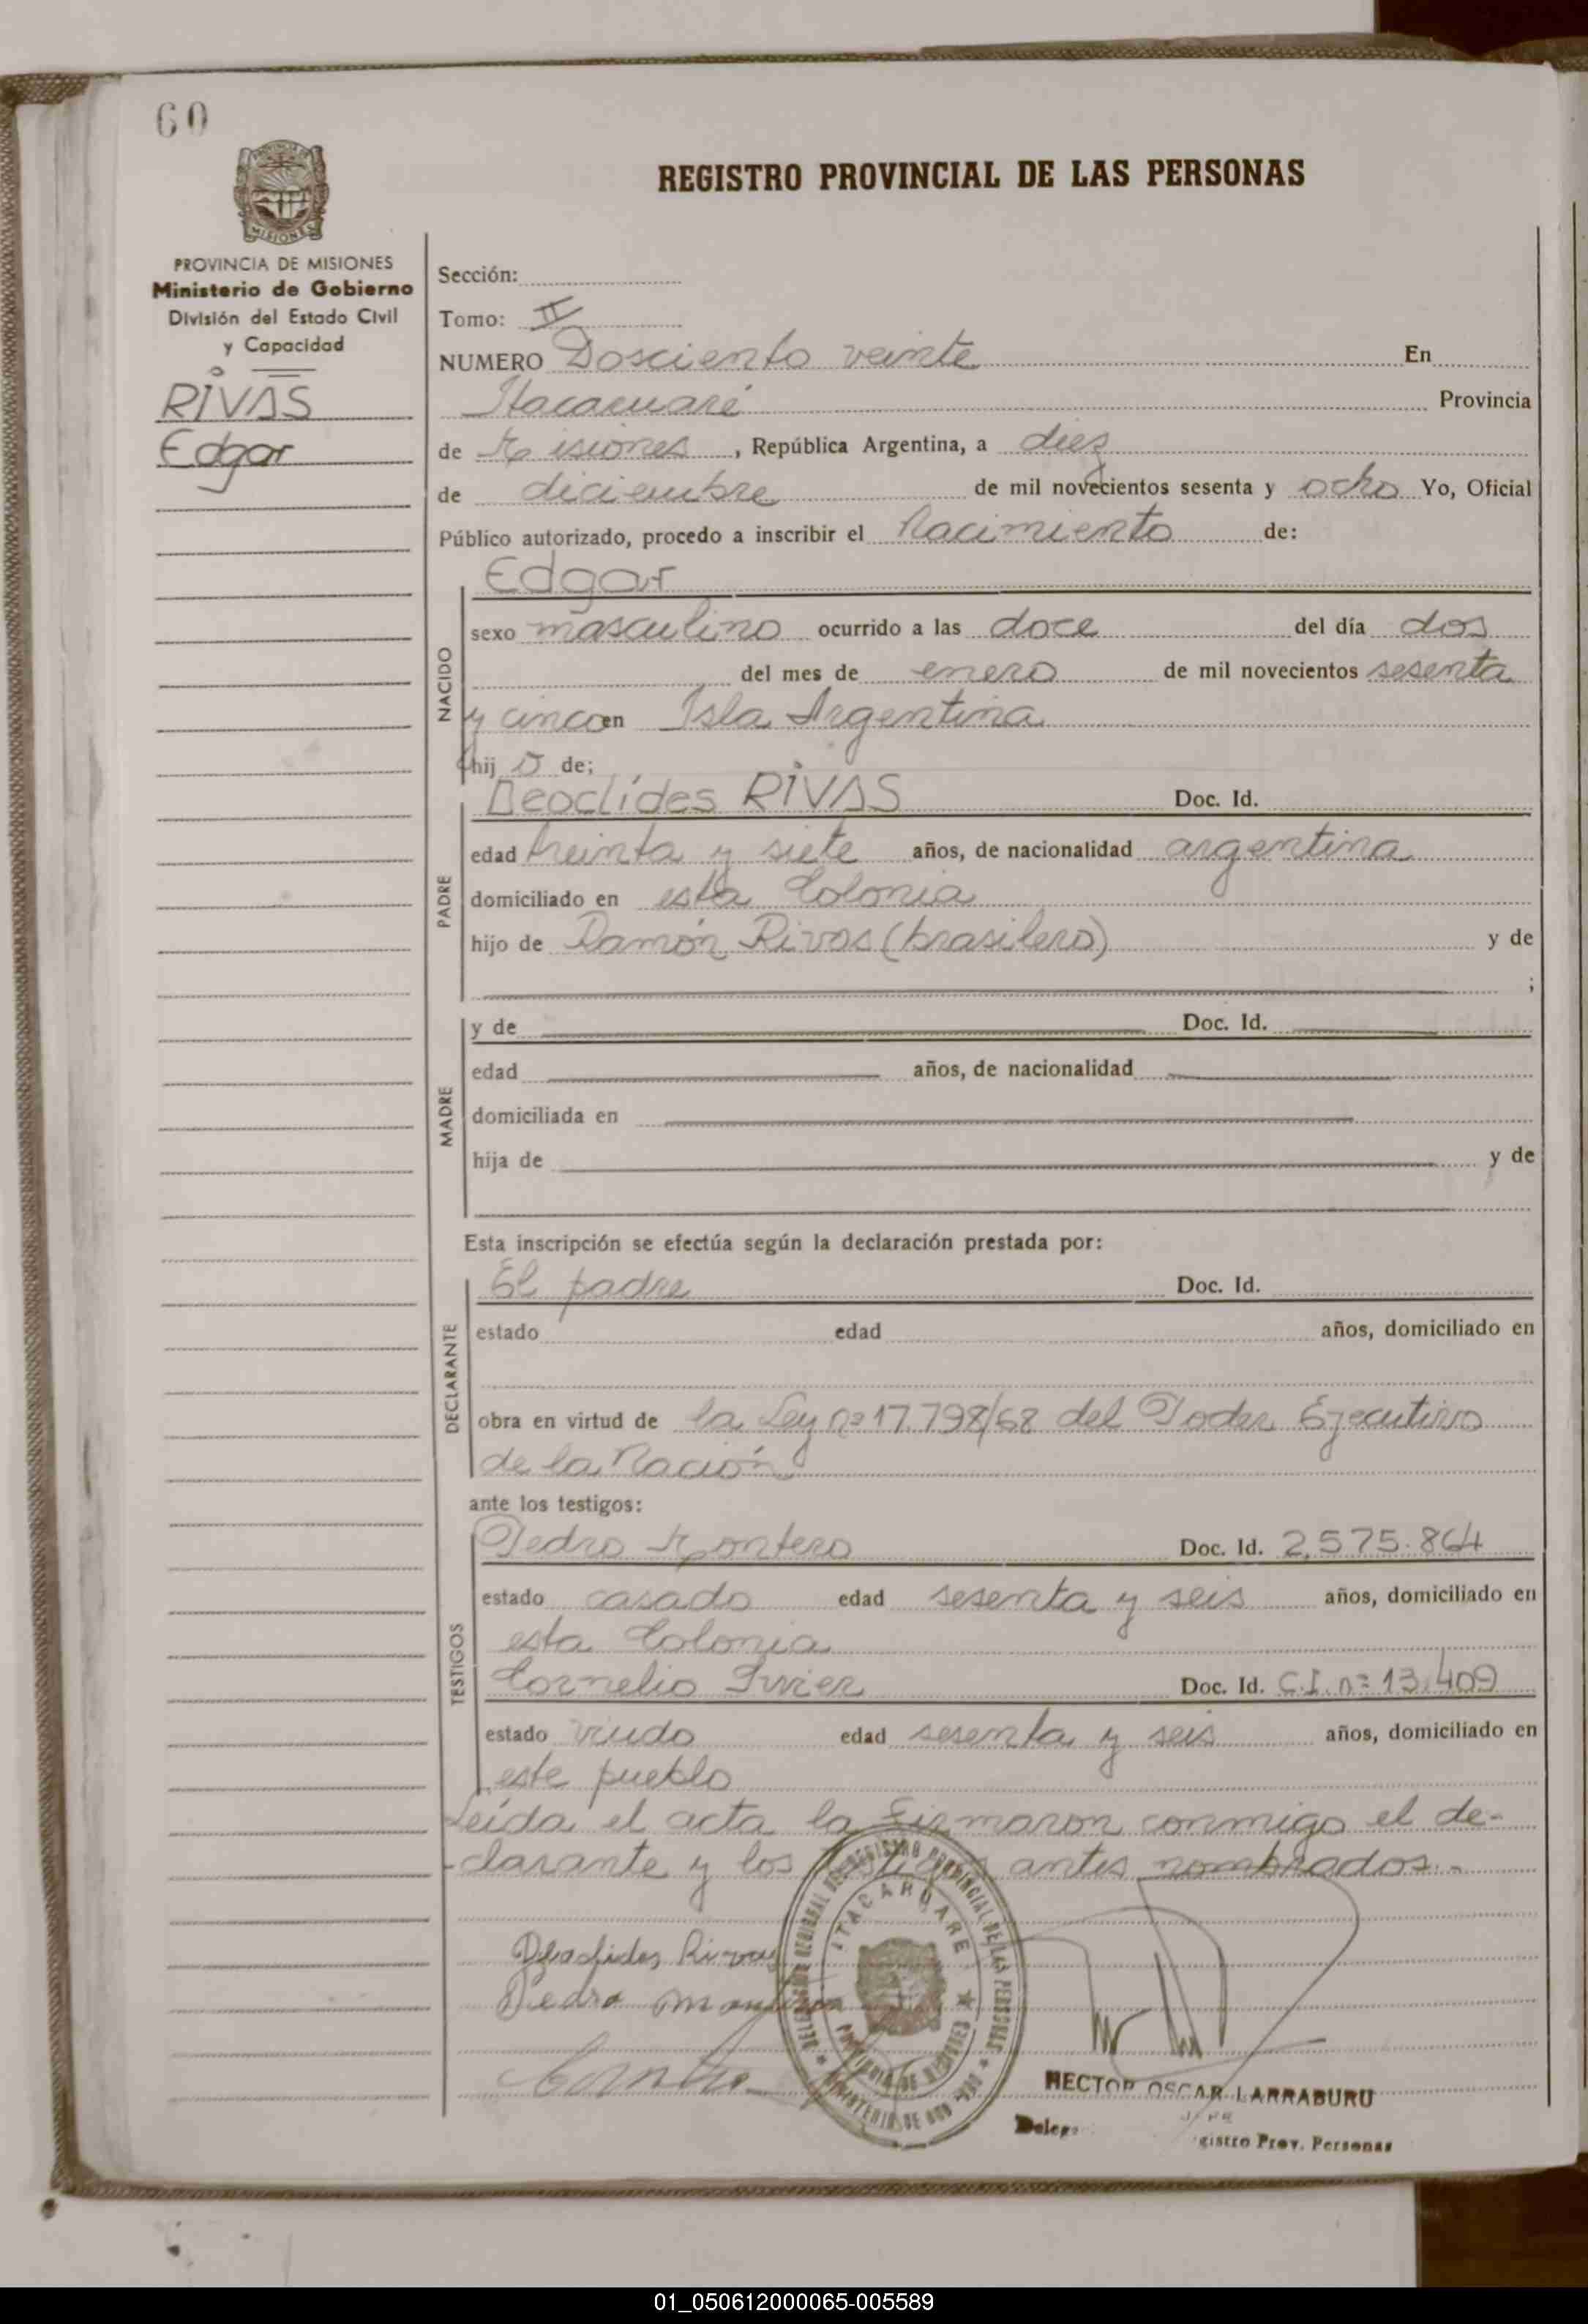 60
PROVINCIA DE MISIONES
Ministerio de Gobierno
División del Estado Civil
y Capacidad
RIVAS
Edgar
REGISTRO PROVINCIAL DE LAS PERSONAS
Sección:
Tomo: II
NUMERO Dosciento veinte En
Itacaruaré Provincia
de Misiones, República Argentina, a diez
de diciembre de mil novecientos sesenta y ocho Yo, Oficial
Público autorizado, procedo a inscribir el Nacimiento de:
Edgar
NACIDO
sexo masculino ocurrido a las doce del día dos
del mes de enero de mil novecientos sesenta
y cinco en Isla Argentina
hij o de;
PADRE
Deoclídes RIVAS Doc. Id.
edad treinta y siete años, de nacionalidad argentina
domiciliado en esta Colonia
hijo de Ramón Rivas (brasilero) y de
;
MADRE
y de Doc. Id.
edad años, de nacionalidad
domiciliada en
hija de y de
Esta inscripción se efectúa según la declaración prestada por:
DECLARANTE
El padre Doc. Id.
estado edad años, domiciliado en
obra en virtud de la Ley nº 17.798/68 del Poder Ejecutivo
de la Nación
ante los testigos:
TESTIGOS
Pedro Montero Doc. Id. 2,575.864
estado casado edad sesenta y seis años, domiciliado en
esta Colonia
Cornelio Doc. Id. C.I. nº 13.409
estado viudo edad sesenta y seis años, domiciliado en
este pueblo
Leída el acta la firmaron conmigo el de-
-clarante y los testigos antes nombrados.-
ITACARUARE
PROVINCIA DE MISIONES
Rivas
Pedro
HECTOR OSCAR LARRABURU
JEFE
Deleg
gistro Prov. Personas
01_050612000065-005589